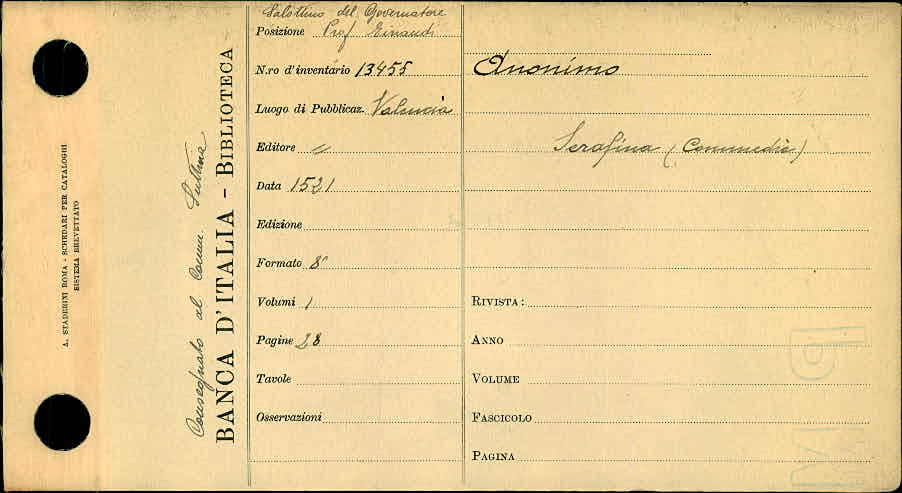 A. STADERINI ROMA - SCHEDARI PER CATALOGHI
SISTEMA BREVETTATO
Consegnato al Comm. Suttina
BANCA D'ITALIA - BIBLIOTECA
Salottino del Governatore
Posizione Prof Einaudi
N.ro d'inventario 13455
Luogo di Pubblicaz. Valencia
Editore "
Data 1521
Edizione
Formato 8°
Volumi 1
Pagine 28
Tavole
Osservazioni
Anonimo
Serafina (Commedia)
RIVISTA:
ANNO
VOLUME
FASCICOLO
PAGINA